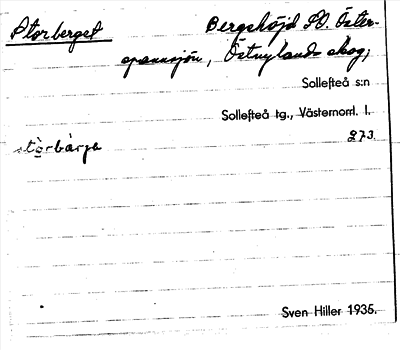 Storberget Bergshöjd SO. Öster-
spannsjön, Östnylands skog;
Sollefteå s:n
Sollefteå tg., Västernorrl. l.
stòrbàrje 273.
Sven Hiller 1935.